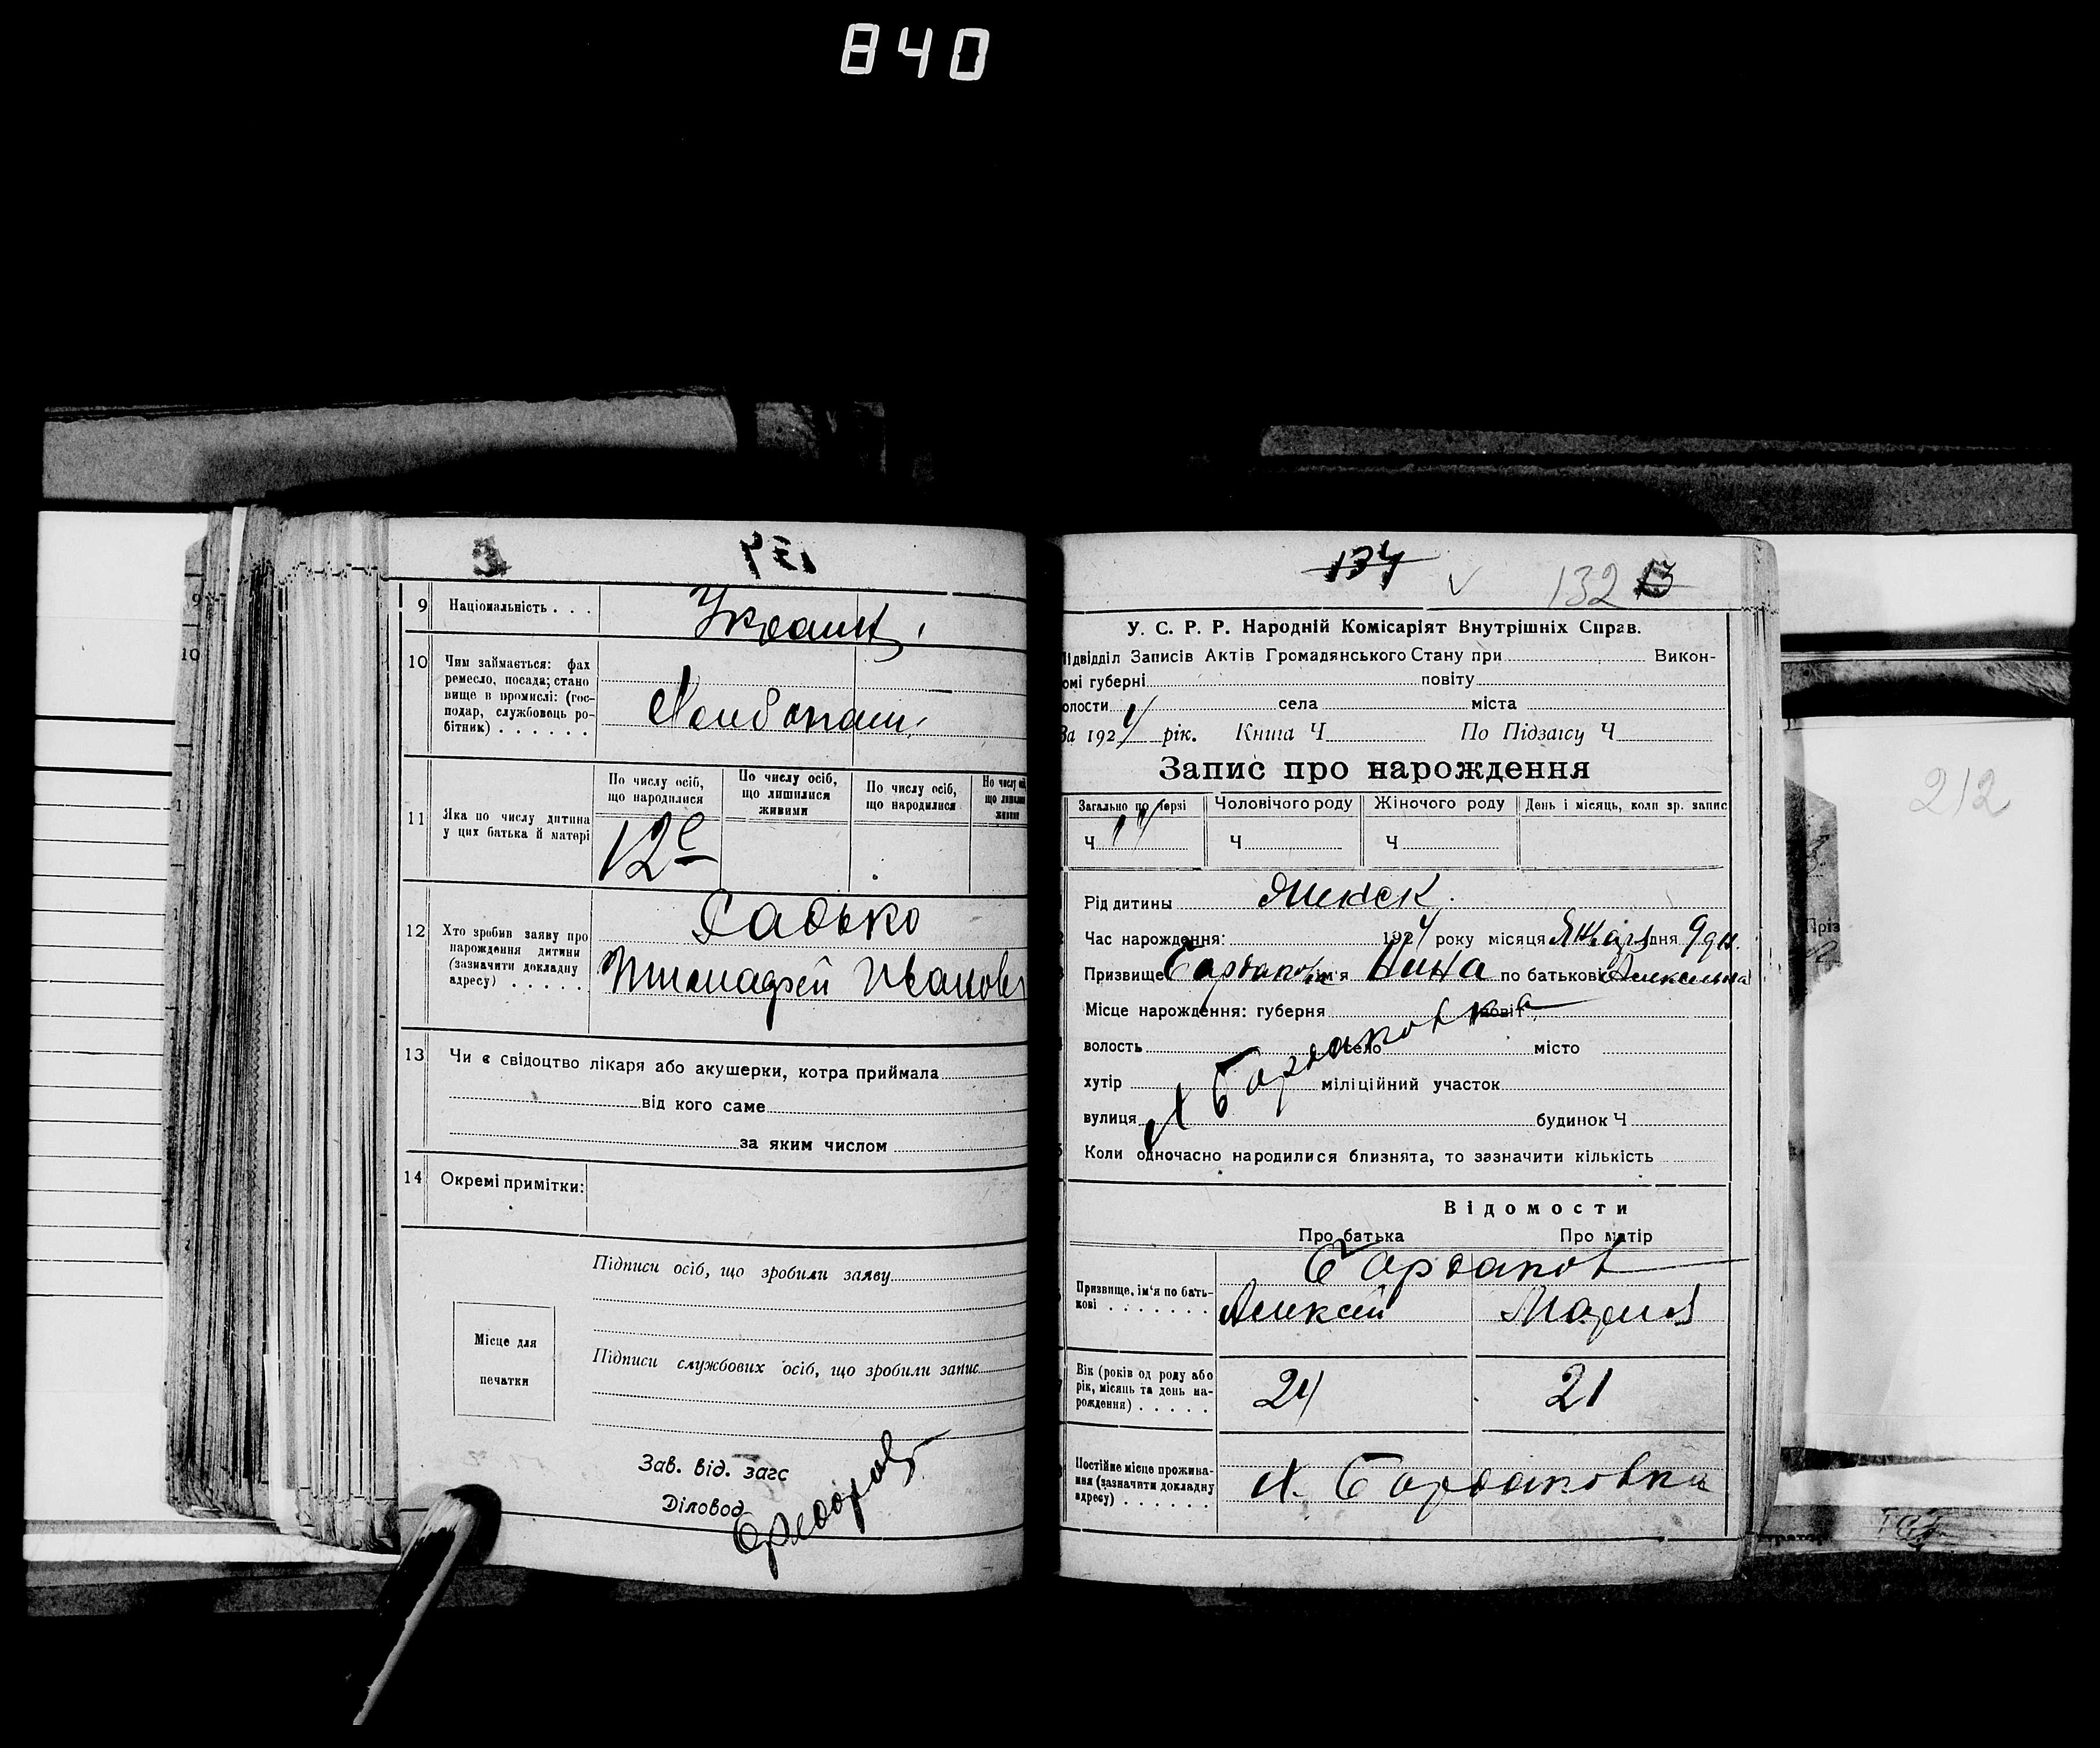 840
9 Національність . . .
Украинц.
10 Чим займається: фах
ремесло, посада; стано
вище в промислі: (гос-
подар, службовець ро-
бітник) . . . . . .
Хлебопаш.
11 Яка по числу дитина
у цих батька й матері
По числу осіб,
що народилися
По числу осіб,
що лишилися
живими
По числу осіб,
що народилися
12е
12 Хто зробив заяву про
нарождення дитини
(зазначити докладну
адресу) . . . . .
Иванов
13 Чи є свідоцтво лікаря або акушерки, котра приймала
від кого саме
за яким числом
14 Окремі примітки:
Підписи осіб, що зробили заяву
Місце для
печатки
Підписи службових осіб, що зробили запис
Зав. від. загс
Діловод
134
132 13
У. С. Р. Р. Народній Комісаріят Внутрішніх Справ.
Підвідділ Записів Актів Громадянського Стану при Викон-
омі губерні повіту
олости села міста
За 1924 рік. Книга Ч По Підзагсу Ч
Запис про нарождення
Загально по черзі Чоловічого роду Жіночого роду День і місяць, коли зр. запис
Ч 14 Ч Ч
Рід дитины Женск.
Час нарождення: 1924 року місяця Января дня 9 дн.
Призвище Бардакова ім'я Нина по батькові Алексеевна
Місце нарождення: губерня повіт
волость село місто
хутір міліційний участок
х Бардаковка
вулиця будинок Ч
Коли одночасно народилися близнята, то зазначити кількість
Відомости
Про батька Про матір
Призвище, ім'я по бать-
кові . . . . . . .
Бардаков
Алексей Мария
Вік (років од роду або
рік, місяць та день на-
рождення) . . . . .
24 21
Постійне місце прожива-
ння (зазначити докладну
адресу) . . . . . .
х. Бардаковка
212